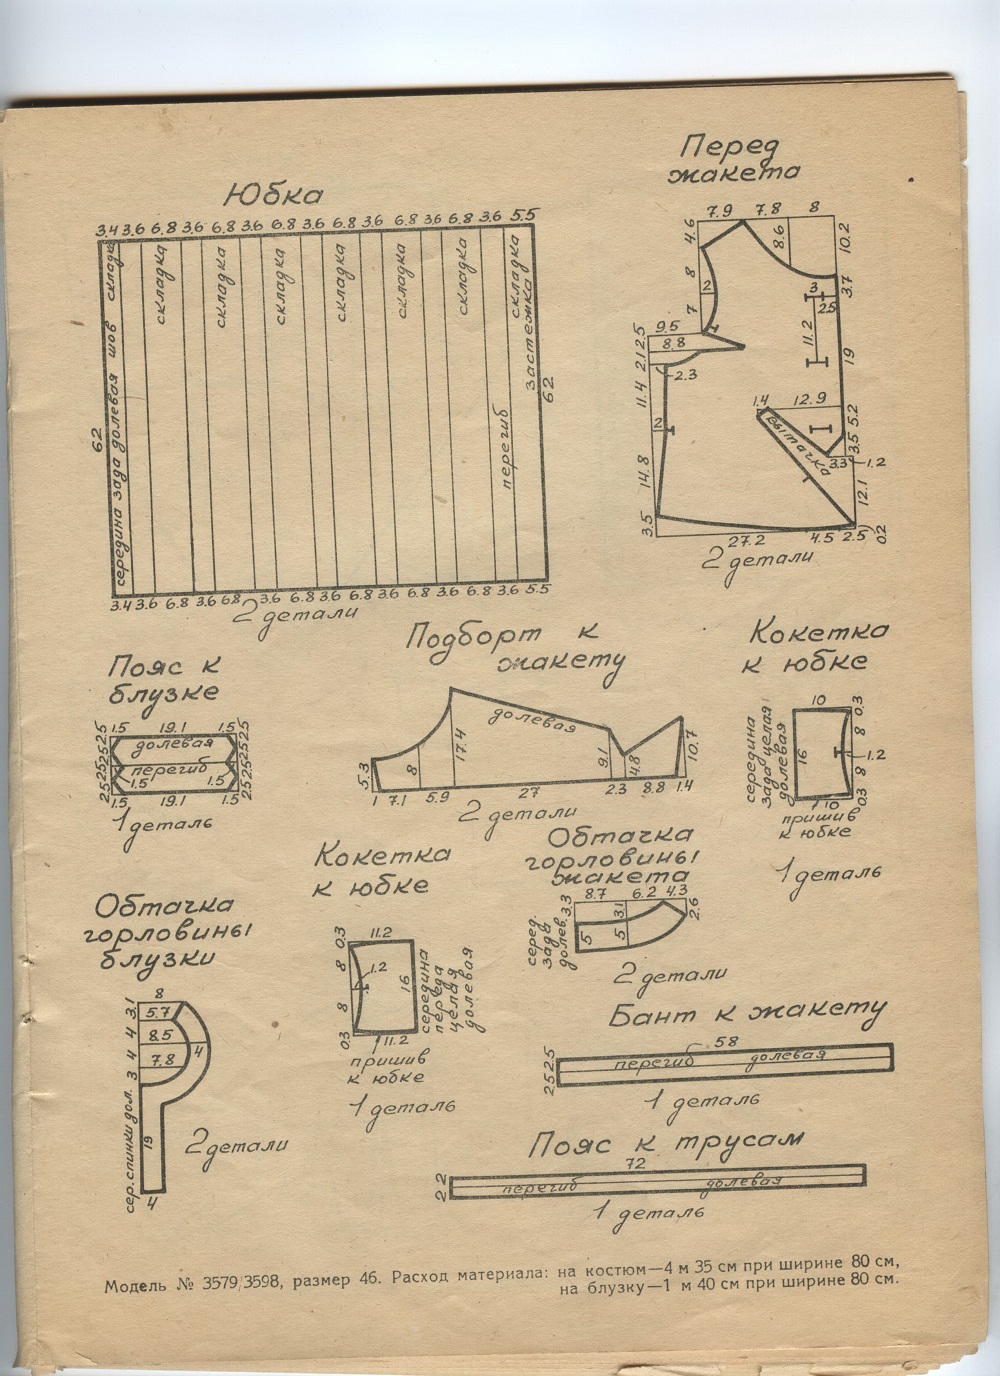 Юбка
3.4 3.6 6.8 3.6 6.8 3.6 6.8 3.6 6.8 3.6 6.8 3.6 6.8 3.6 5.5
складка складка складка складка складка складка складка складка
середина зада долевая шов
62
перегиб
застежка
62
3.4 3.6 6.8 3.6 6.8 3.6 6.8 3.6 6.8 3.6 6.8 3.6 6.8 3.6 5.5
2 детали
Перед
жакета
7.9 7.8 8
4.6 8.6 10.2
8 2 3 3.7
7 2.5
9.5 11.2 19
2.5 8.8
2.1 2.3
11.4 1.4 12.9 5.2
2 вытачка 3.5
3.3 1.2
14.8 12.1
3.5 27.2 4.5 2.5 0.2
2 детали
Пояс к
блузке
1.5 19.1 1.5
2.5 2.5 2.5 2.5
долевая
перегиб
1.5 1.5
2.5 2.5 2.5 2.5
1.5 19.1 1.5
1 деталь
Подборт к
жакету
долевая
5.3 8 17.4 9.1 4.8 10.7
1 7.1 5.9 27 2.3 8.8 1.4
2 детали
Кокетка
к юбке
10
середина
зада целая
долевая
16
0.3
8
1.2
8
0.3
10
пришив
к юбке
1 деталь
Кокетка
к юбке
11.2
0.3
8
1.2
8
0.3
16
середина
переда
целая
долевая
11.2
пришив
к юбке
1 деталь
Обтачка
горловины
жакета
8.7 6.2 4.3
3.3 3.1 2.6
5 5
серед.
зада
долев.
2 детали
Обтачка
горловины
блузки
8
3.1 5.7
4 8.5 4
4 7.8
3
сер.спинки дол.
19
4
2 детали
Бант к жакету
58
2.5 2.5
перегиб долевая
1 деталь
Пояс к трусам
72
2 2
перегиб долевая
1 деталь
Модель № 3579/3598, размер 46. Расход материала: на костюм—4 м 35 см при ширине 80 см,
на блузку—1 м 40 см при ширине 80 см.